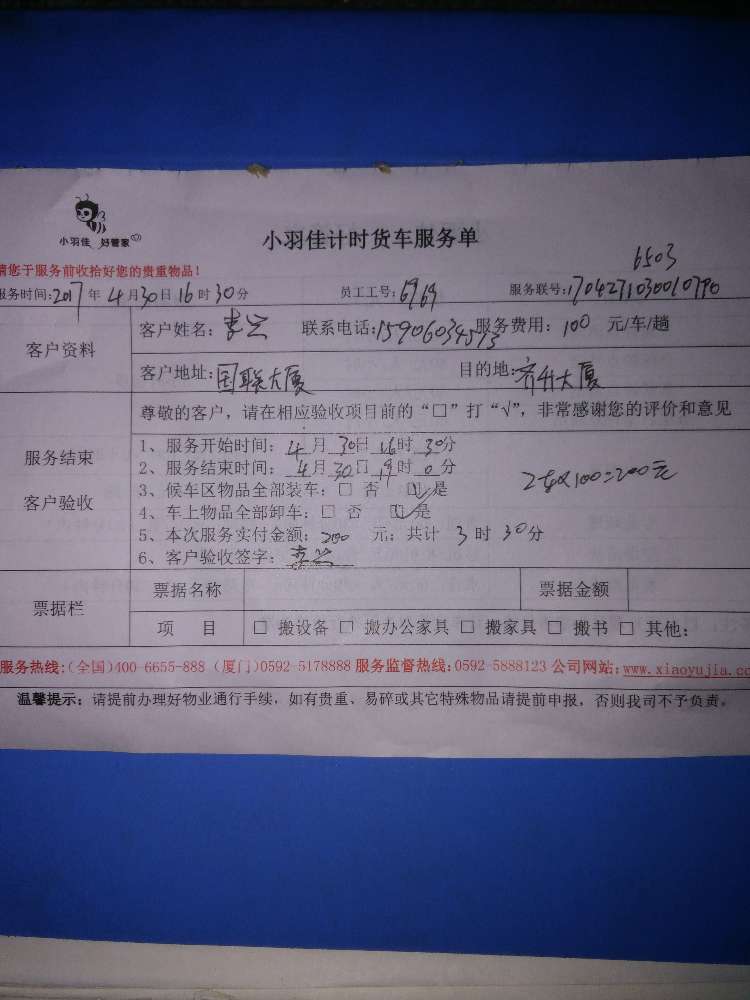 小羽佳 好管家
小羽佳计时货车服务单
6503
请您于服务前收拾好您的贵重物品!
服务时间:2017年4月30日16时30分 员工工号:6969 服务联号:1704271030010790
客户资料
客户姓名: 联系电话:15906034513 服务费用:100 元/车/趟
客户地址:国联大厦 目的地:齐升大厦
服务结束
客户验收
尊敬的客户,请在相应验收项目前的“□”打“√”,非常感谢您的评价和意见
1、服务开始时间:4月30日16时30分
2、服务结束时间:4月30日19时0分
3、候车区物品全部装车:□ 否 ☑是
4、车上物品全部卸车:□ 否 ☑是
2车X100=200元
5、本次服务实付金额:200 元;共计 3 时 30分
6、客户验收签字:
票据栏
票据名称 票据金额
项 目 □ 搬设备 □ 搬办公家具 □ 搬家具 □ 搬书 □ 其他:
服务热线:(全国)400-6655-888 (厦门)0592-5178888 服务监督热线:0592-5888123 公司网站:www.xiaoyujia.co
温馨提示:请提前办理好物业通行手续,如有贵重、易碎或其它特殊物品请提前申报,否则我司不予负责。